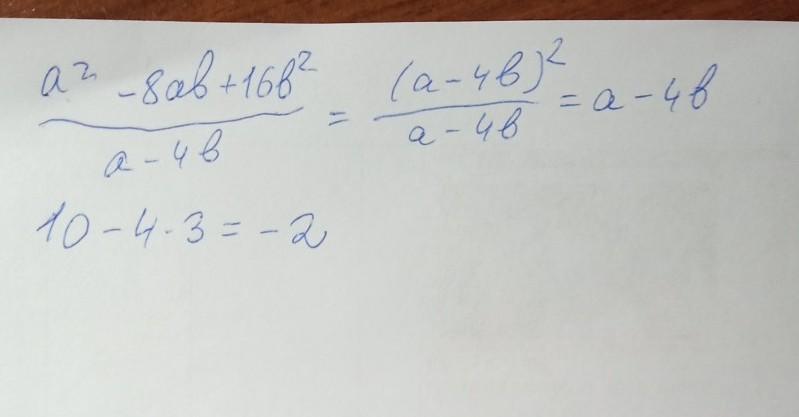 a² - 8ab + 16b² / a - 4b = (a - 4b)² / a - 4b = a - 4b
10 - 4 · 3 = - 2